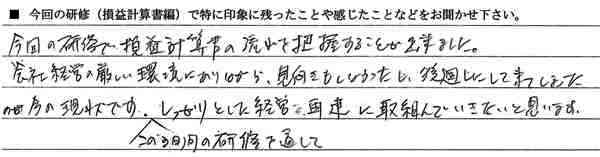 ■ 今回の研修（損益計算書編）で特に印象に残ったことや感じたことなどをお聞かせ下さい。
今回の研修で損益計算書の流れを把握することが出来ました。
会社経営の厳しい環境にありながら、見向きもしなかったし、後回しにして来ました
のが今の現状です。しっかりとした経営で再建に取組んでいきたいと思います。
この3日間の研修を通して